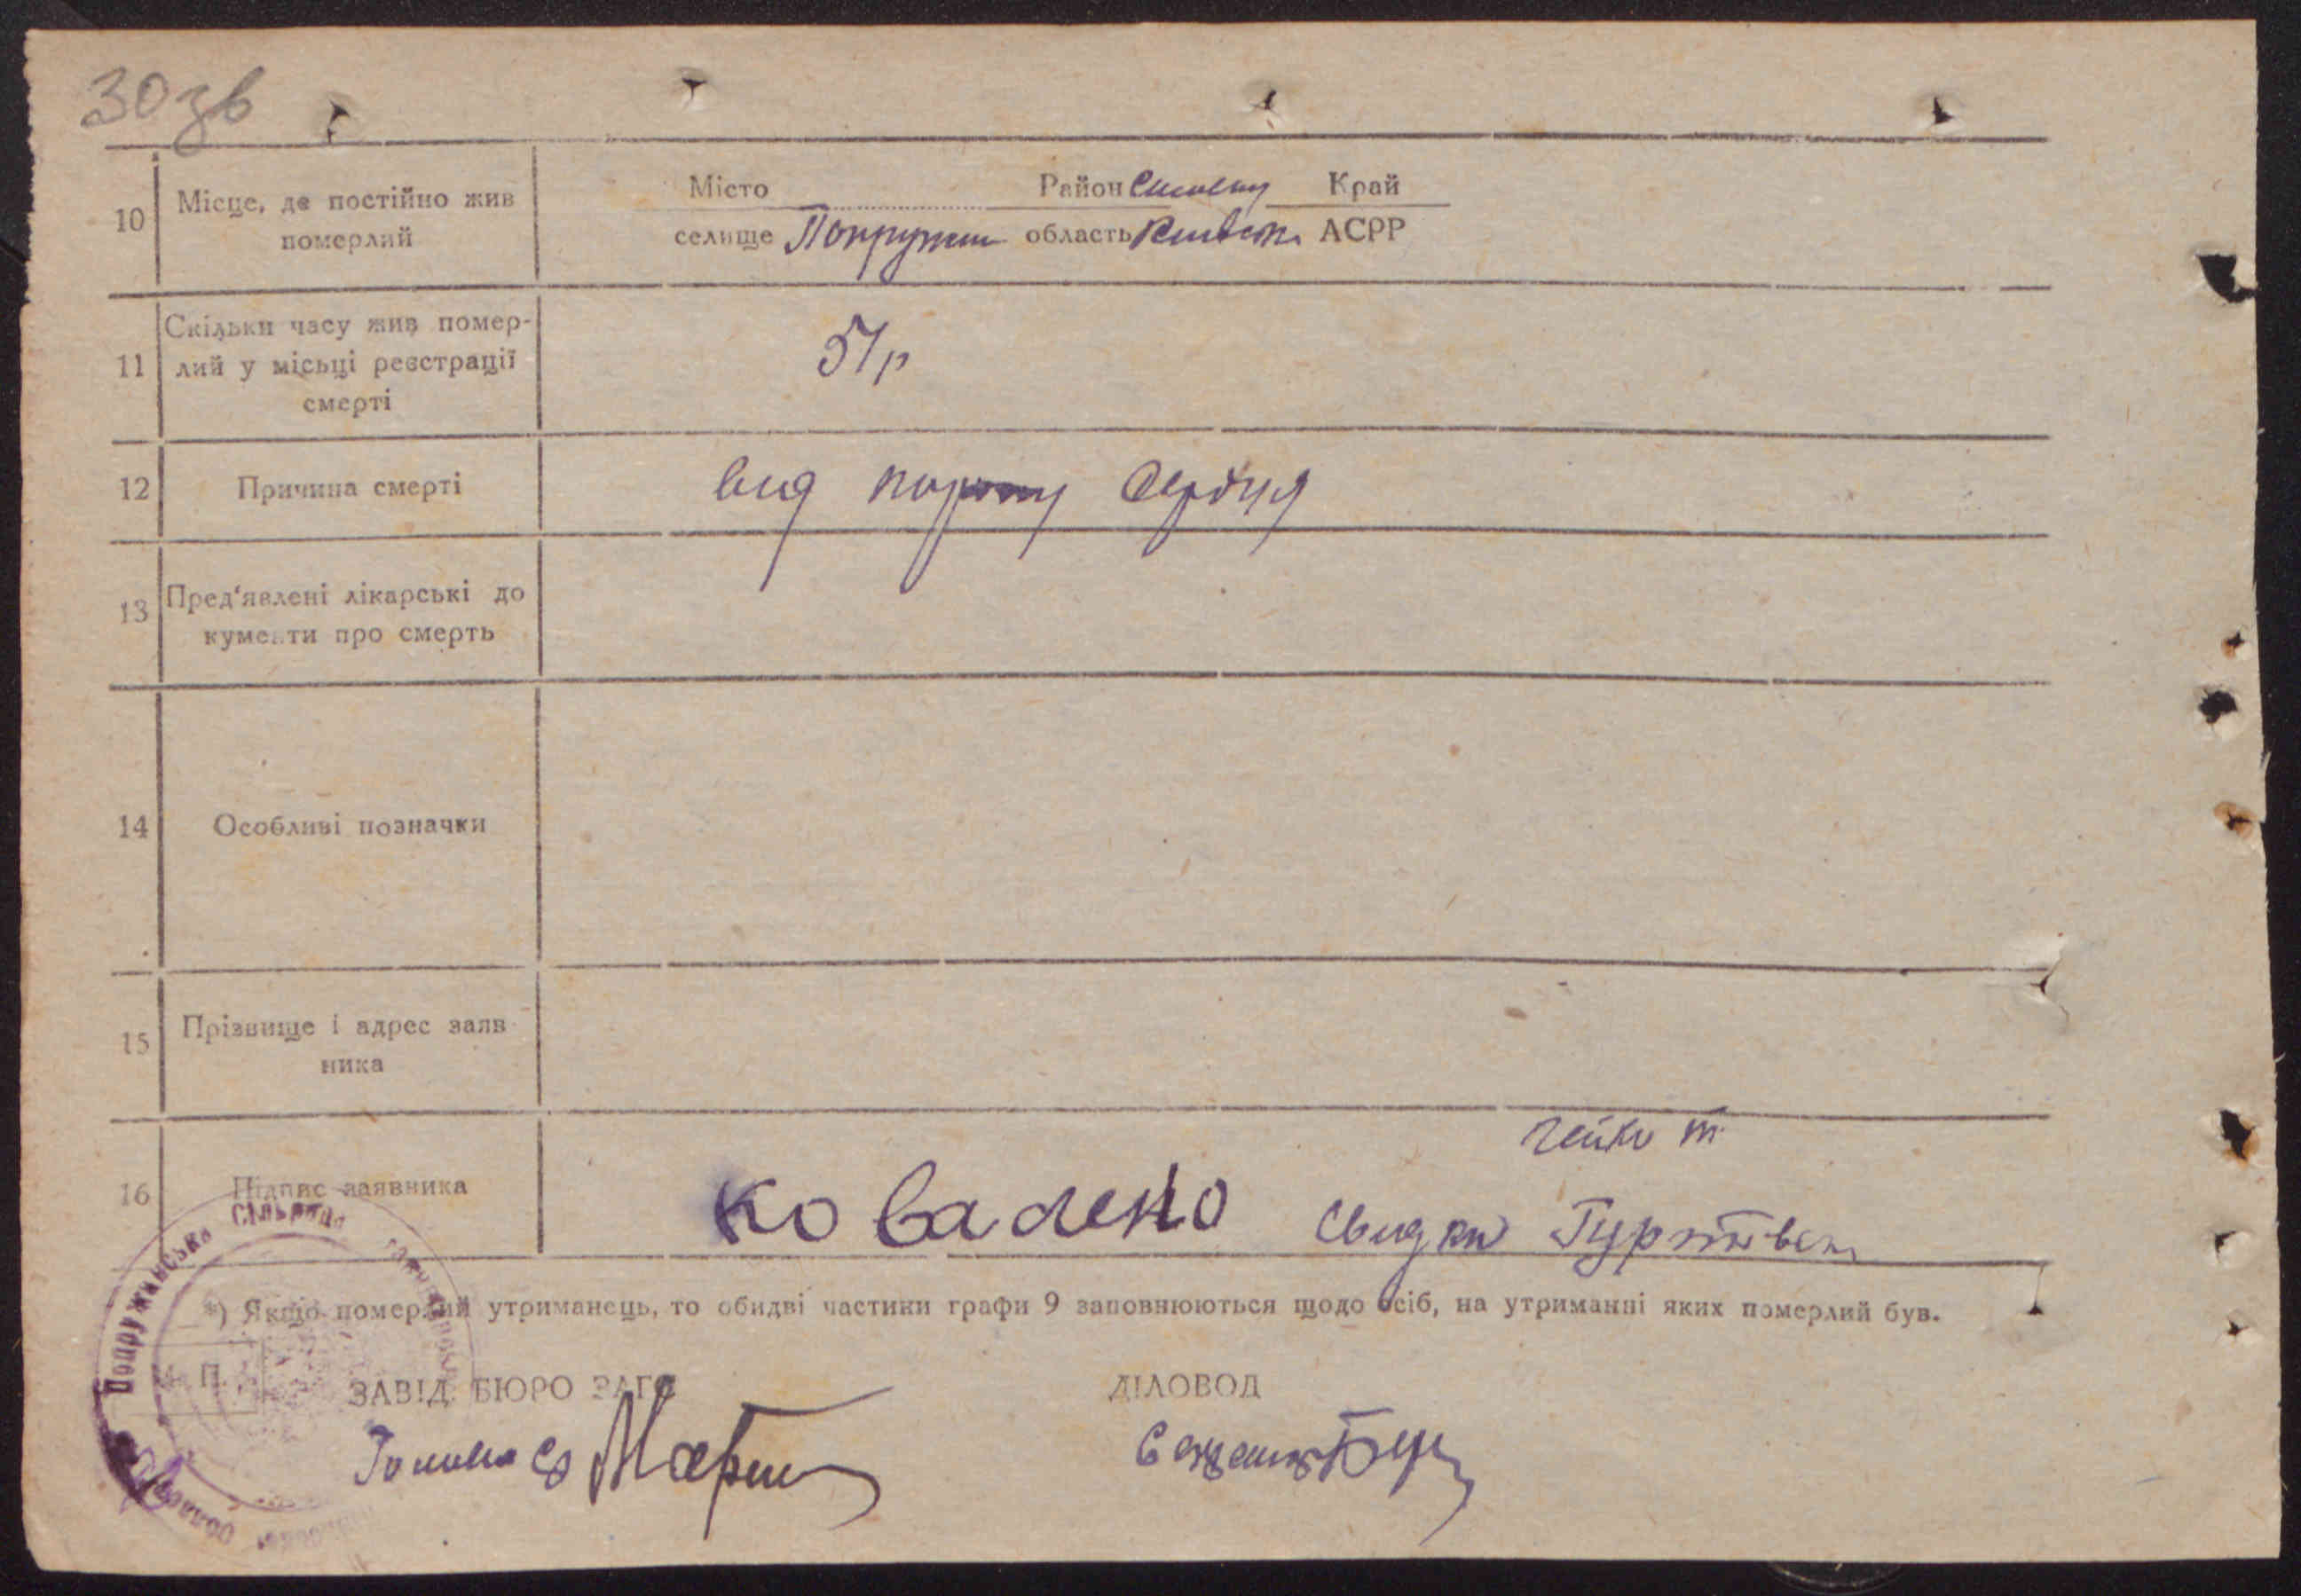 30зв
10 Місце, де постійно жив померлий
Місто Район Край
селище Попружки область Київськ АСРР
11 Скільки часу жив помер-
лий у місьці реєстрації
смерті
51р
12 Причина смерті вид пороку сердця
13 Пред'явлені лікарські до
кументи про смерть
14 Особливі позначки
15 Прізвище і адрес заяв
ника
Гейко т.
16 Підпис заявника Коваленко свидки
*) Якщо померлий утриманець, то обидві частини графи 9 заповнюються щодо осіб, на утриманні яких померлий був.
Попружинська Сільрада
П.
ЗАВІД. БЮРО ЗАГС ДІЛОВОД
Голова ср
Секретар